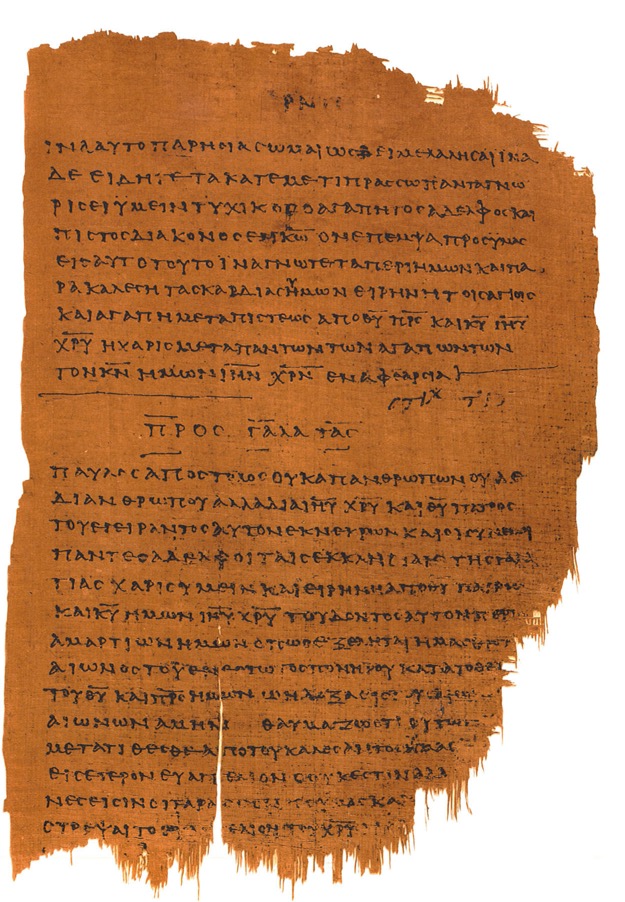 ΡΝΗ
ΙΝΑ ΑΥΤΟ ΠΑΡΗϹΙΑϹΩΜΑΙ ΩϹ ΔΕΙ ΜΕ ΛΑΛΗϹΑΙ ΙΝΑ
ΔΕ ΕΙΔΗΤΕ ΤΑ ΚΑΤ ΕΜΕ ΤΙ ΠΡΑϹϹΩ ΠΑΝΤΑ ΓΝΩ
ΡΙϹΕΙ ΥΜΕΙΝ ΤΥΧΙΚΟϹ Ο ΑΓΑΠΗΤΟϹ ΑΔΕΛΦΟϹ ΚΑΙ
ΠΙϹΤΟϹ ΔΙΑΚΟΝΟϹ ΕΝ Κ̅Ω̅ ΟΝ ΕΠΕΜΨΑ ΠΡΟϹ ΥΜΑϹ
ΕΙϹ ΑΥΤΟ ΤΟΥΤΟ ΙΝΑ ΓΝΩΤΕ ΤΑ ΠΕΡΙ ΗΜΩΝ ΚΑΙ ΠΑ
ΡΑΚΑΛΕϹΗ ΤΑϹ ΚΑΡΔΙΑϹ ΗΜΩΝ ΕΙΡΗΝΗ ΤΟΙϹ ΑΓΙΟΙϹ
ΚΑΙ ΑΓΑΠΗ ΜΕΤΑ ΠΙϹΤΕΩϹ ΑΠΟ Θ̅Υ̅ Π̅Ρ̅Ϲ̅ ΚΑΙ Κ̅Υ̅ Ι̅Η̅Υ̅
Χ̅Ρ̅Υ̅ Η ΧΑΡΙϹ ΜΕΤΑ ΠΑΝΤΩΝ ΤΩΝ ΑΓΑΠΩΝΤΩΝ
ΤΟΝ Κ̅Ν̅ ΗΜΩΝ Ι̅Η̅Ν̅ Χ̅Ρ̅Ν̅ ΕΝ ΑΦΘΑΡϹΙΑ
ϹΤΙΧ
Π̅Ρ̅Ο̅Ϲ̅ Γ̅Α̅Λ̅Α̅Τ̅Α̅Ϲ̅
ΠΑΥΛΟϹ ΑΠΟϹΤΟΛΟϹ ΟΥΚ ΑΠ ΑΝΘΡΩΠΩΝ ΟΥΔΕ
ΔΙ ΑΝΘΡΩΠΟΥ ΑΛΛΑ ΔΙΑ Ι̅Η̅Υ̅ Χ̅Ρ̅Υ̅ ΚΑΙ Θ̅Υ̅ ΠΑΤΡΟϹ
ΤΟΥ ΕΓΕΙΡΑΝΤΟϹ ΑΥΤΟΝ ΕΚ ΝΕΚΡΩΝ ΚΑΙ ΟΙ ϹΥΝ ΕΜΟΙ
ΠΑΝΤΕϹ ΑΔΕΛΦΟΙ ΤΑΙϹ ΕΚΚΛΗϹΙΑΙϹ ΤΗϹ ΓΑΛΑ
ΤΙΑϹ ΧΑΡΙϹ ΥΜΕΙΝ ΚΑΙ ΕΙΡΗΝΗ ΑΠΟ Θ̅Υ̅ ΠΑΤΡΟϹ
ΚΑΙ Κ̅Υ̅ ΗΜΩΝ Ι̅Η̅Υ̅ Χ̅Ρ̅Υ̅ ΤΟΥ ΔΟΝΤΟϹ ΑΥΤΟΝ ΠΕΡΙ
ΑΜΑΡΤΙΩΝ ΗΜΩΝ ΟΠΩϹ ΕΞΕΛΗΤΑΙ ΗΜΑϹ
ΑΙΩΝΟϹ ΤΟΥ ΕΝΕϹΤΩΤΟϹ ΠΟΝΗΡΟΥ ΚΑΤΑ ΤΟ ΘΕΛ
ΤΟΥ Θ̅Υ̅ ΚΑΙ Π̅Ρ̅Ϲ̅ ΗΜΩΝ Ω Η ΔΟΞΑ ΕΙϹ
ΑΙΩΝΩΝ ΑΜΗΝ ΘΑΥΜΑΖΩ ΟΤΙ ΟΥΤΩϹ
ΜΕΤΑΤΙΘΕϹΘΕ ΑΠΟ ΤΟΥ ΚΑΛΕϹΑΝΤΟϹ ΥΜΑϹ
ΕΙϹ ΕΤΕΡΟΝ ΕΥΑΓΓΕΛΙΟΝ Ο ΟΥΚ ΕϹΤΙΝ ΑΛΛ
ΝΕϹ ΕΙϹΙΝ ΟΙ ΤΑΡΑϹϹΟΝΤΕϹ ΥΜΑϹ ΚΑΙ
ϹΤΡΕΨΑΙ ΤΟ ΕΥΑΓΓΕΛΙΟΝ ΤΟΥ Χ̅Ρ̅Υ̅